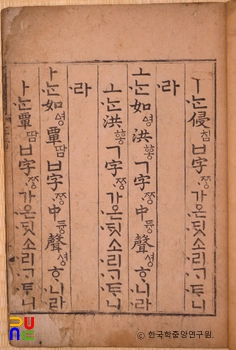 ㅣᄂᆞᆫ侵침ㅂ字ᄍᆞᆼ가온ᄃᆡᆺ소리ᄀᆞᄐᆞ니
라
ㅗᄂᆞᆫ如ᅀᅧᆼ洪ᅘᅩᇰㄱ字ᄍᆞᆼ中듀ᇰ聲셔ᇰᄒᆞ니라
ㅗᄂᆞᆫ洪ᅘᅩᇰㄱ字ᄍᆞᆼ가온ᄃᆡᆺ소리ᄀᆞᄐᆞ니
라
ㅏᄂᆞᆫ如ᅀᅧᆼ覃땀ㅂ字ᄍᆞᆼ中듀ᇰ聲셔ᇰᄒᆞ니라
ㅏᄂᆞᆫ覃땀ㅂ字ᄍᆞᆼ가온ᄃᆡᆺ소리ᄀᆞᄐᆞ니
© 한국학중앙연구원.